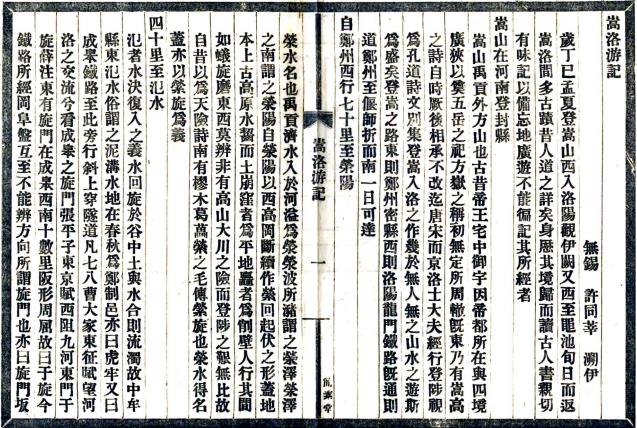 嵩洛游記
無錫　許同莘　溯伊
歲丁巳孟夏登嵩山西入洛陽觀伊闕又西至黽池旬日而返
嵩洛間多古蹟昔人道之詳矣身歷其境歸而讀古人書親切
有味記以備忘地廣遊不能徧記其所經者
嵩山在河南登封縣
嵩山禹貢外方山也古昔帝王宅中御宇因帝都所在與四境
廣狹以奠五岳之祀方嶽之稱初無定所周轍旣東乃有嵩高
之詩自時厥後相承不改迄唐宋而京洛士大夫經行登陟視
爲孔道詩文別集登嵩入洛之作幾於無人無之山水之遊斯
爲盛矣登嵩之路東則鄭州密縣西則洛陽龍門鐵路旣通則
道鄭州至偃師折而南一日可達
自鄭州西行七十里至滎陽
嵩洛游記
一
滎水名也禹貢濟水入於河溢爲滎滎波所瀦謂之滎澤滎澤
之南謂之滎陽自滎陽以西高岡斷續作滎回起伏之形蓋地
本上古高原水齧而土崩窪者爲平地矗者爲削壁人行其間
如蟻旋磨東西莫辨非有高山大川之險而登陟之艱無比故
自昔以爲天險詩南有樛木葛藟縈之毛傳縈旋也滎水得名
蓋亦以縈旋爲義
四十里至氾水
氾者水決復入之義水回旋於谷中土與水合則流濁故中牟
縣東氾水俗謂之泥溝水地在春秋爲鄭制邑亦曰虎牢又曰
成皋鐵路至此旁行斜上穿隧道凡七八曹大家東征賦望河
洛之交流兮看成皋之旋門張平子東京賦西阻九河東門于
旋薛注東有旋門在成皋西南十數里阪形周屈故曰于旋今
鐵路所經岡阜盤互至不能辨方向所謂旋門也亦曰旋門坂